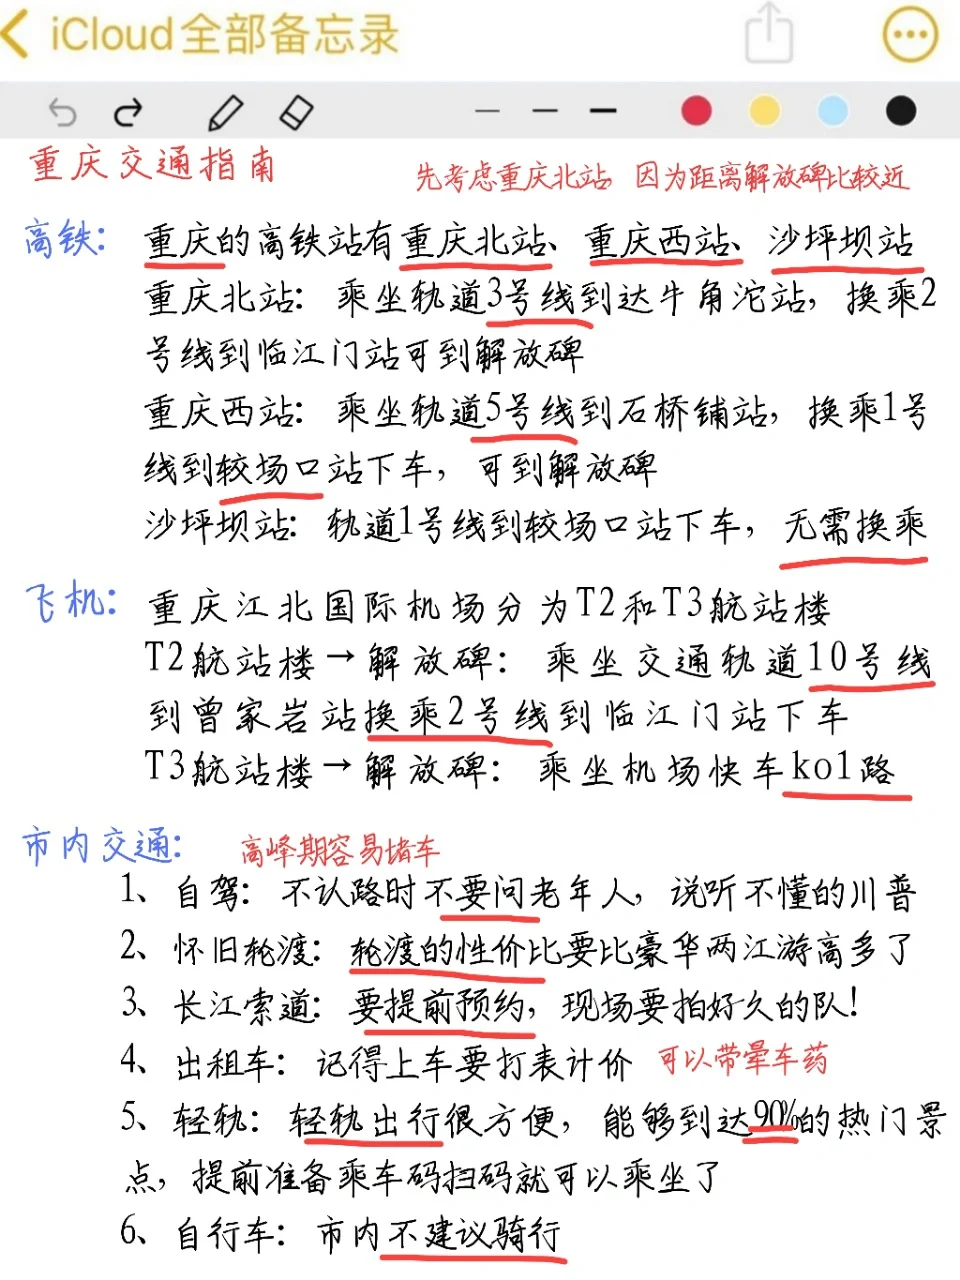 iCloud全部备忘录
重庆交通指南
先考虑重庆北站,因为距离解放碑比较近
高铁:重庆的高铁站有重庆北站、重庆西站、沙坪坝站
重庆北站:乘坐轨道3号线到达牛角沱站,换乘2
号线到临江门站可到解放碑
重庆西站:乘坐轨道5号线到石桥铺站,换乘1号
线到较场口站下车,可到解放碑
沙坪坝站:轨道1号线到较场口站下车,无需换乘
飞机:重庆江北国际机场分为T2和T3航站楼
T2航站楼→解放碑:乘坐交通轨道10号线
到曾家岩站换乘2号线到临江门站下车
T3航站楼→解放碑:乘坐机场快车ko1路
市内交通:高峰期容易堵车
1、自驾:不认路时不要问老年人,说听不懂的川普
2、怀旧轮渡:轮渡的性价比要比豪华两江游高多了
3、长江索道:要提前预约,现场要拍好久的队!
4、出租车:记得上车要打表计价 可以带晕车药
5、轻轨:轻轨出行很方便,能够到达90%的热门景
点,提前准备乘车码扫码就可以乘坐了
6、自行车:市内不建议骑行